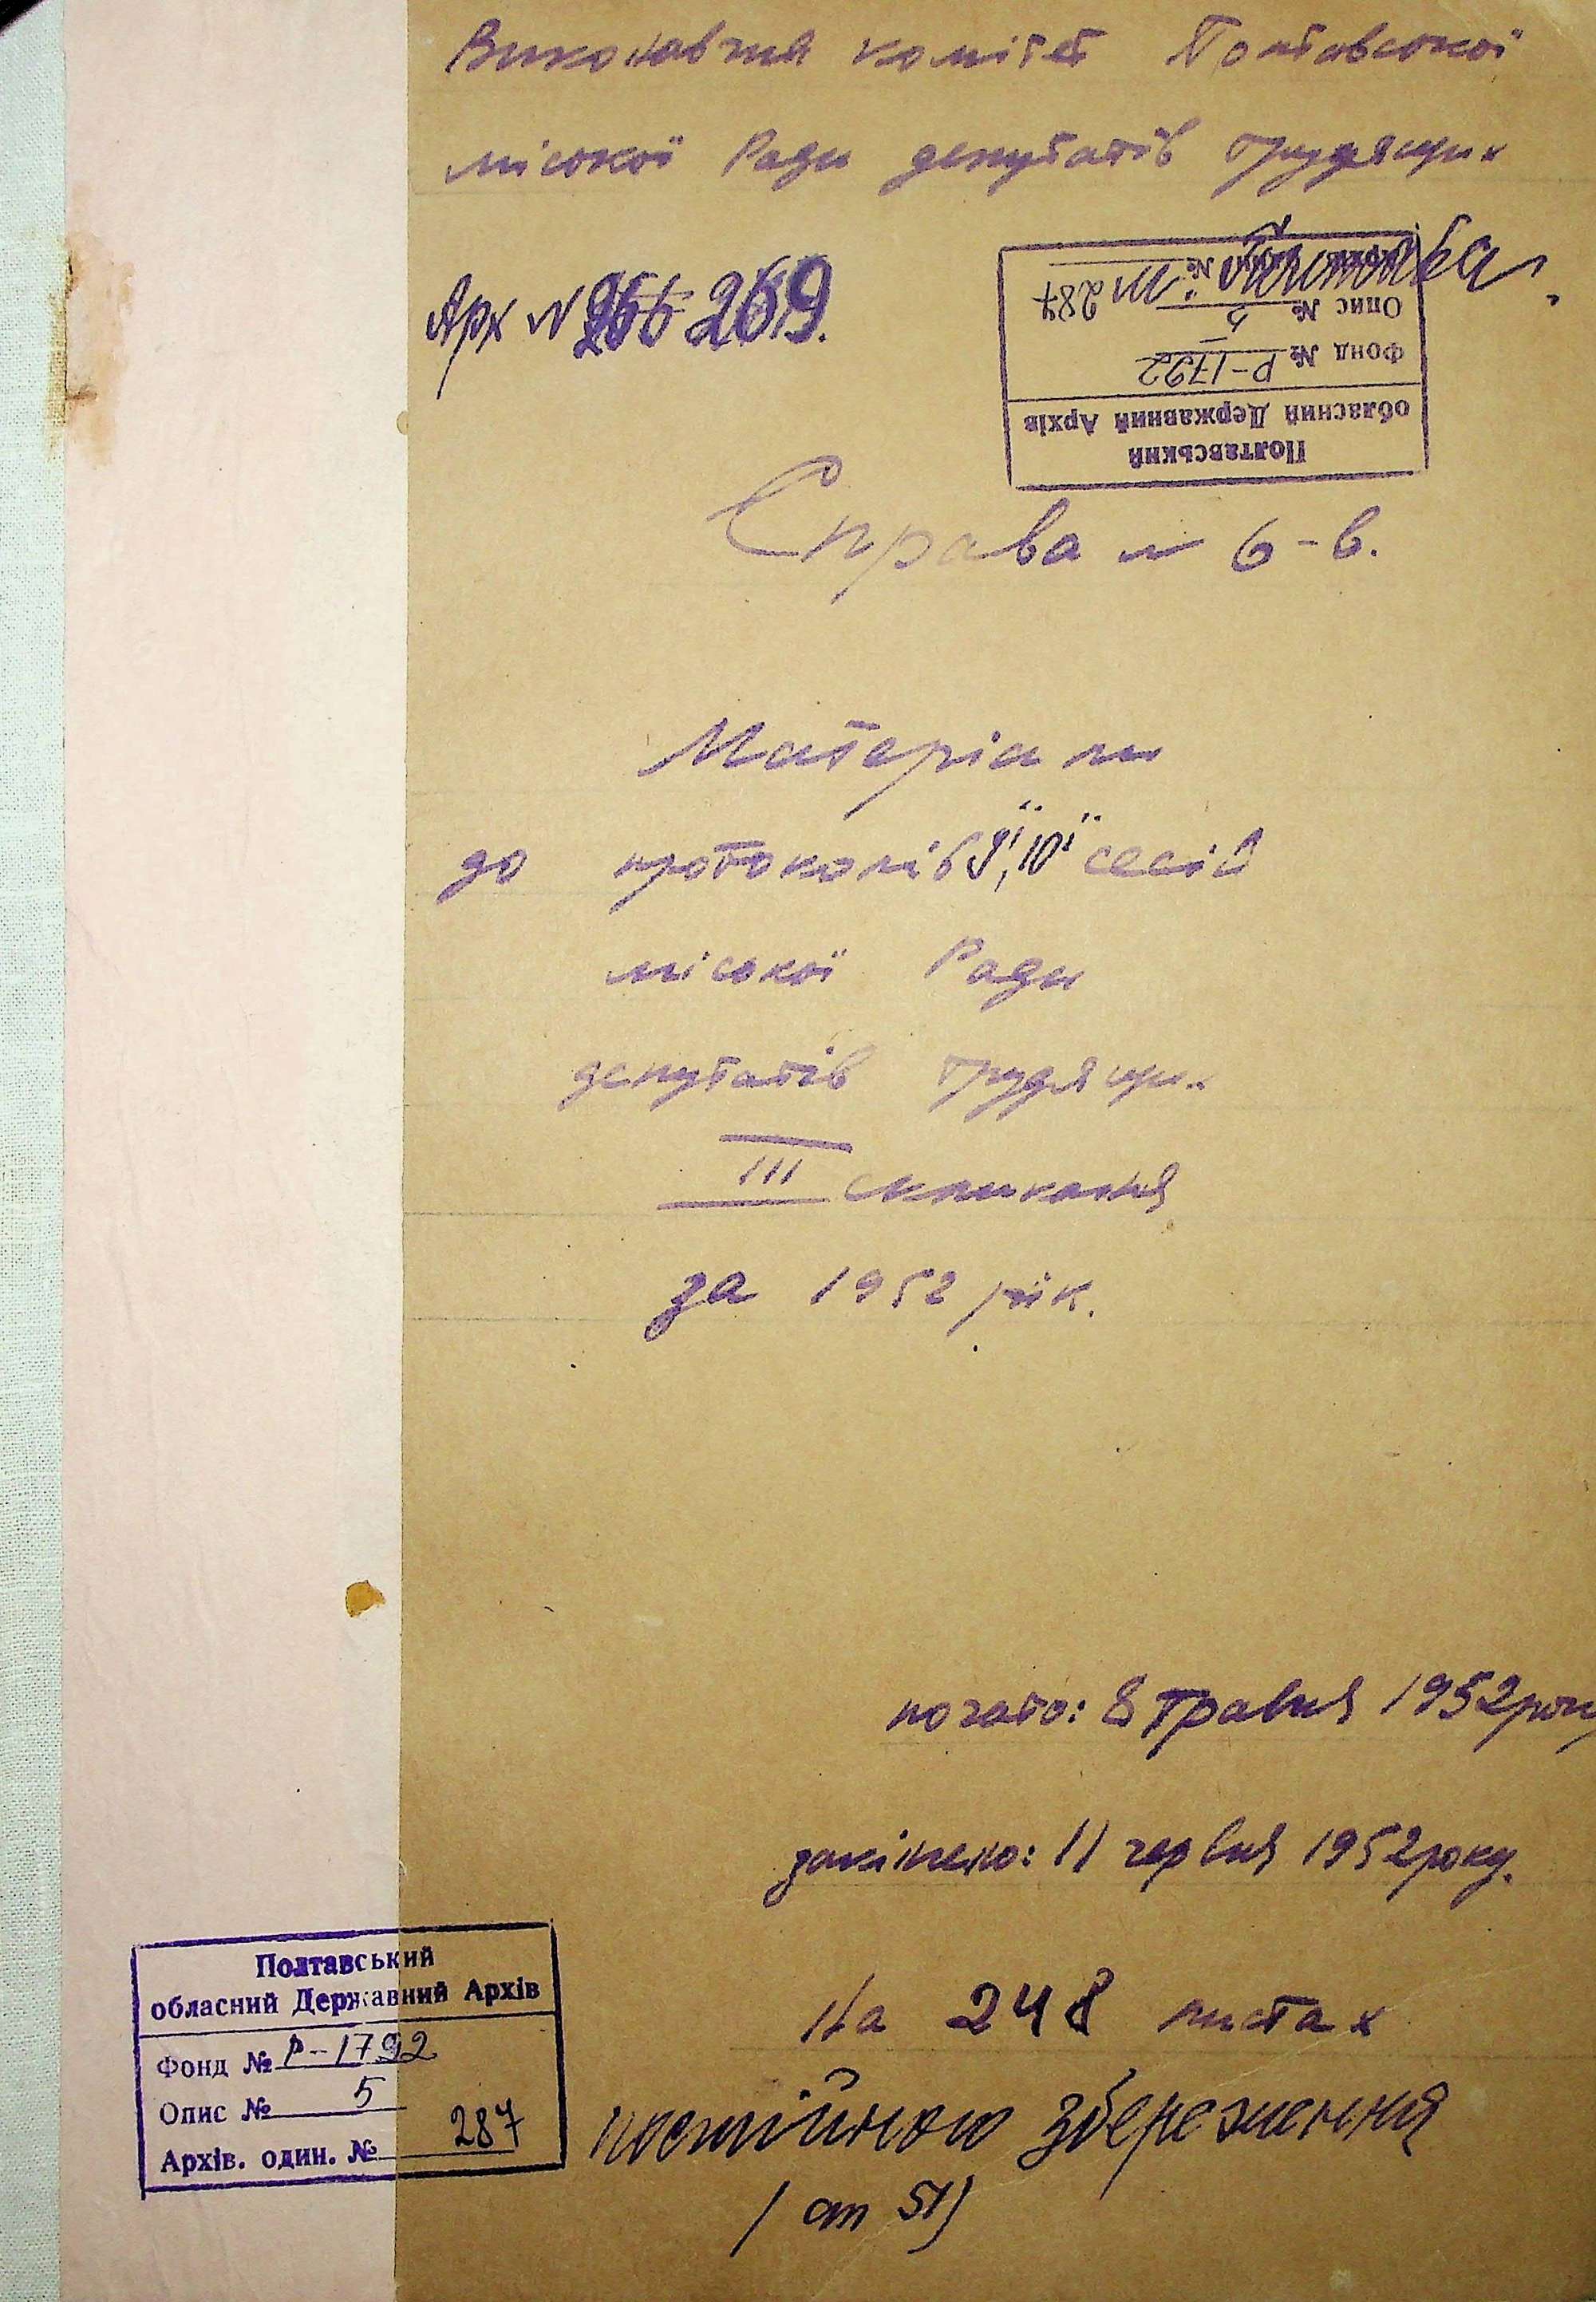 Виконавчий комітет Полтавської
міської Ради депутатів трудящих
м. Полтава.
Арх № 266 269.
Полтавський
обласний Державний Архів
Фонд № Р-1792
Опис № 5
287
Справа № 6-в.
Матеріали
до протоколів 9ї, 10ї сесій
міської Ради
депутатів трудящих
III скликання
за 1952 рік.
почато: 8 травня 1952 року
закінчено: 11 червня 1952 року.
На 248 листах
постійного збереження
(ст 51)
Полтавський
обласний Державний Архів
Фонд № Р-1792
Опис № 5
Архів. один. № 287